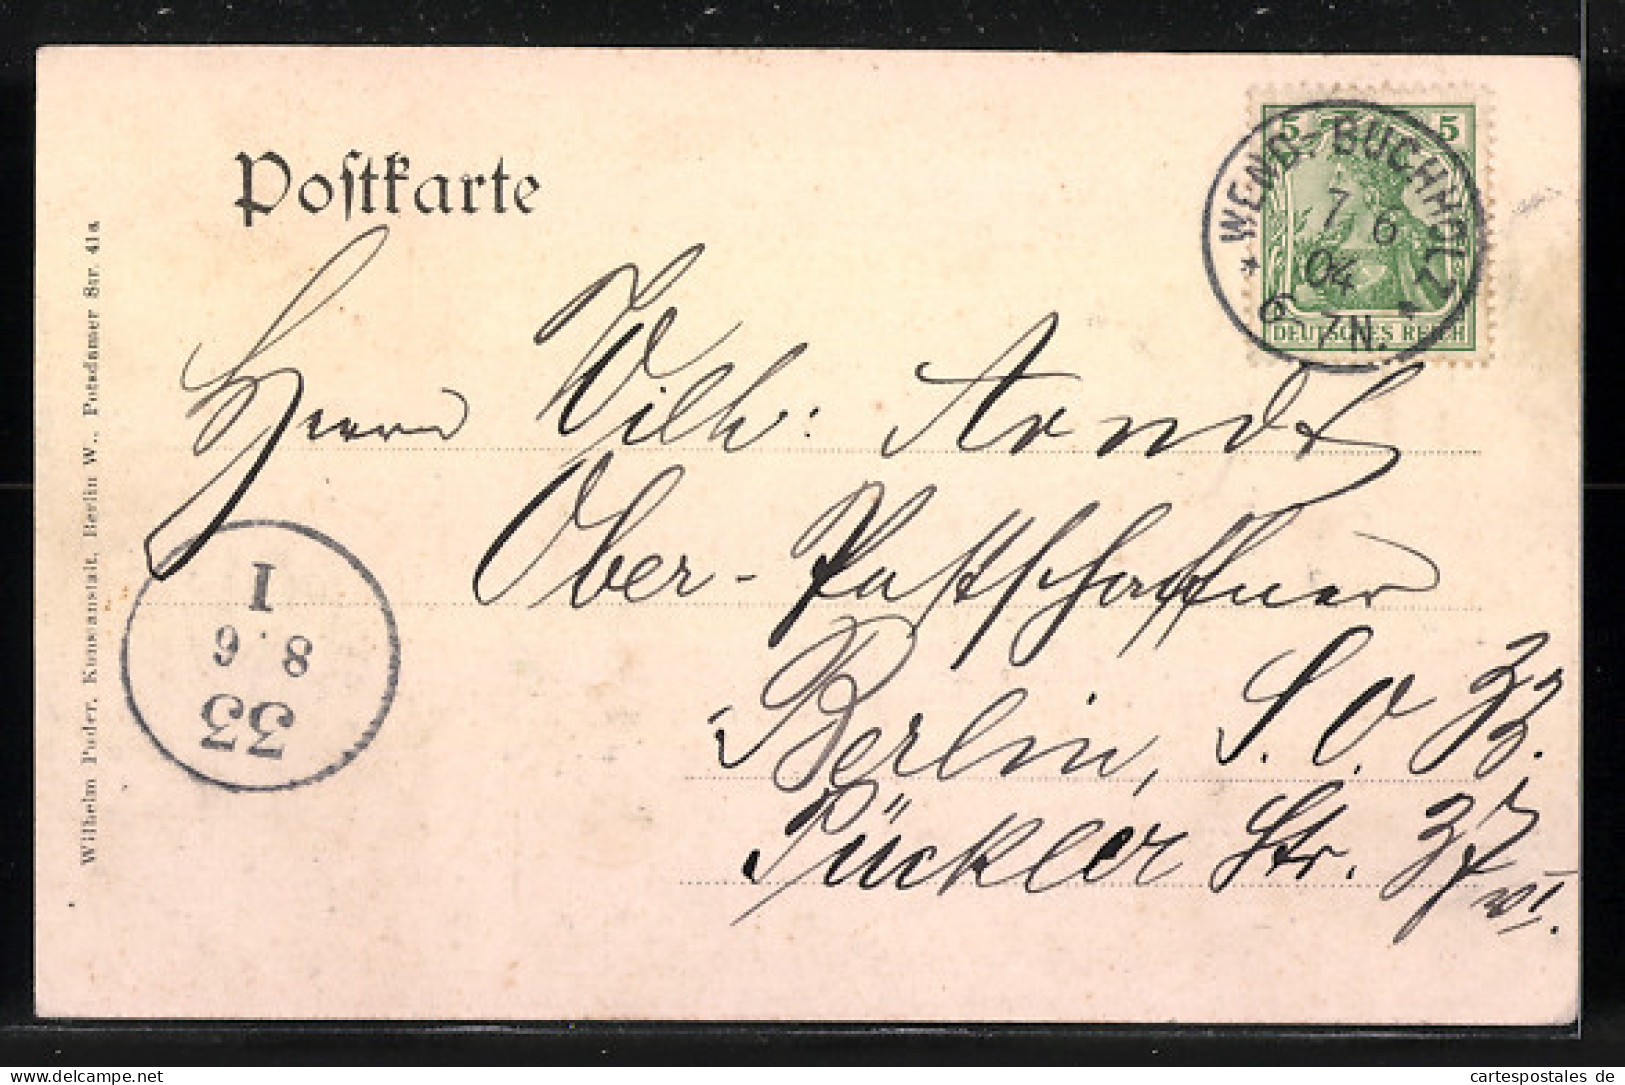 Postkarte
5 5
DEUTSCHES REICH
* WEND. BUCHHOLZ *
7 6
04
6-7N.
Herrn Wilh: Arndt
Ober-Postschaffner
Berlin, S. O. 33.
Pückler Str. 37 VI.
33
8.6
1
Wilhelm Puder, Kunstanstalt, Berlin W., Potsdamer Str. 41a
cartespostales de